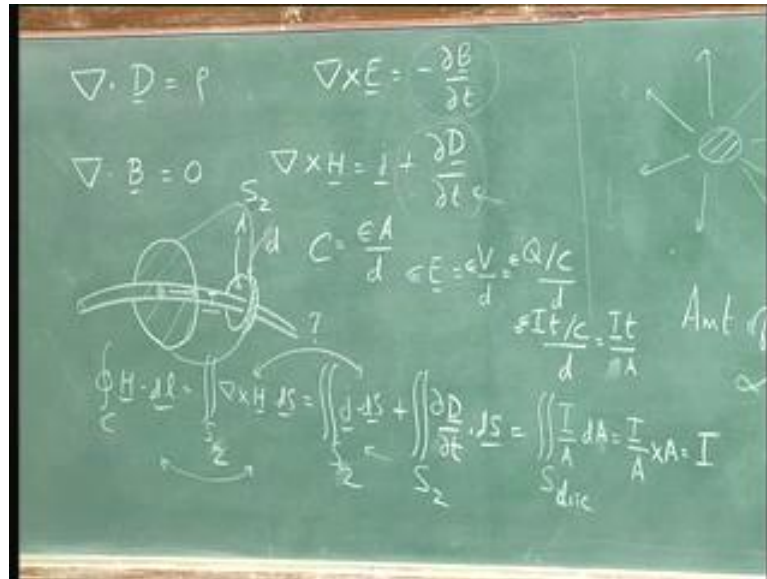 ∇· D = ρ
∇×E = - ∂B/∂t
∇· B = 0
∇×H = i + ∂D/∂t
S₂
A
d
C = εA/d
εE = εV/d = εQ/C/d
εIt/C/d = It/A
?
Amt
∝
∮_C H·dl = ∬_S₂ ∇×H dS = ∬_S₂ d·dS + ∬_S₂ ∂D/∂t·dS = ∬_S disc I/A dA = I/A ×A = I